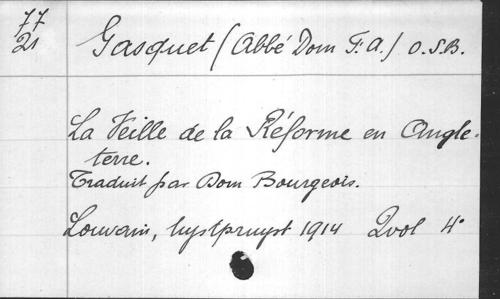 77
21
Gasquet (Abbé Dom F. A.) O.S.B.
La Veille de la Réforme en Angle-
terre.
Traduit par Dom Bourgeois.
Louvain, Uystpruyst 1914 2vol 4°